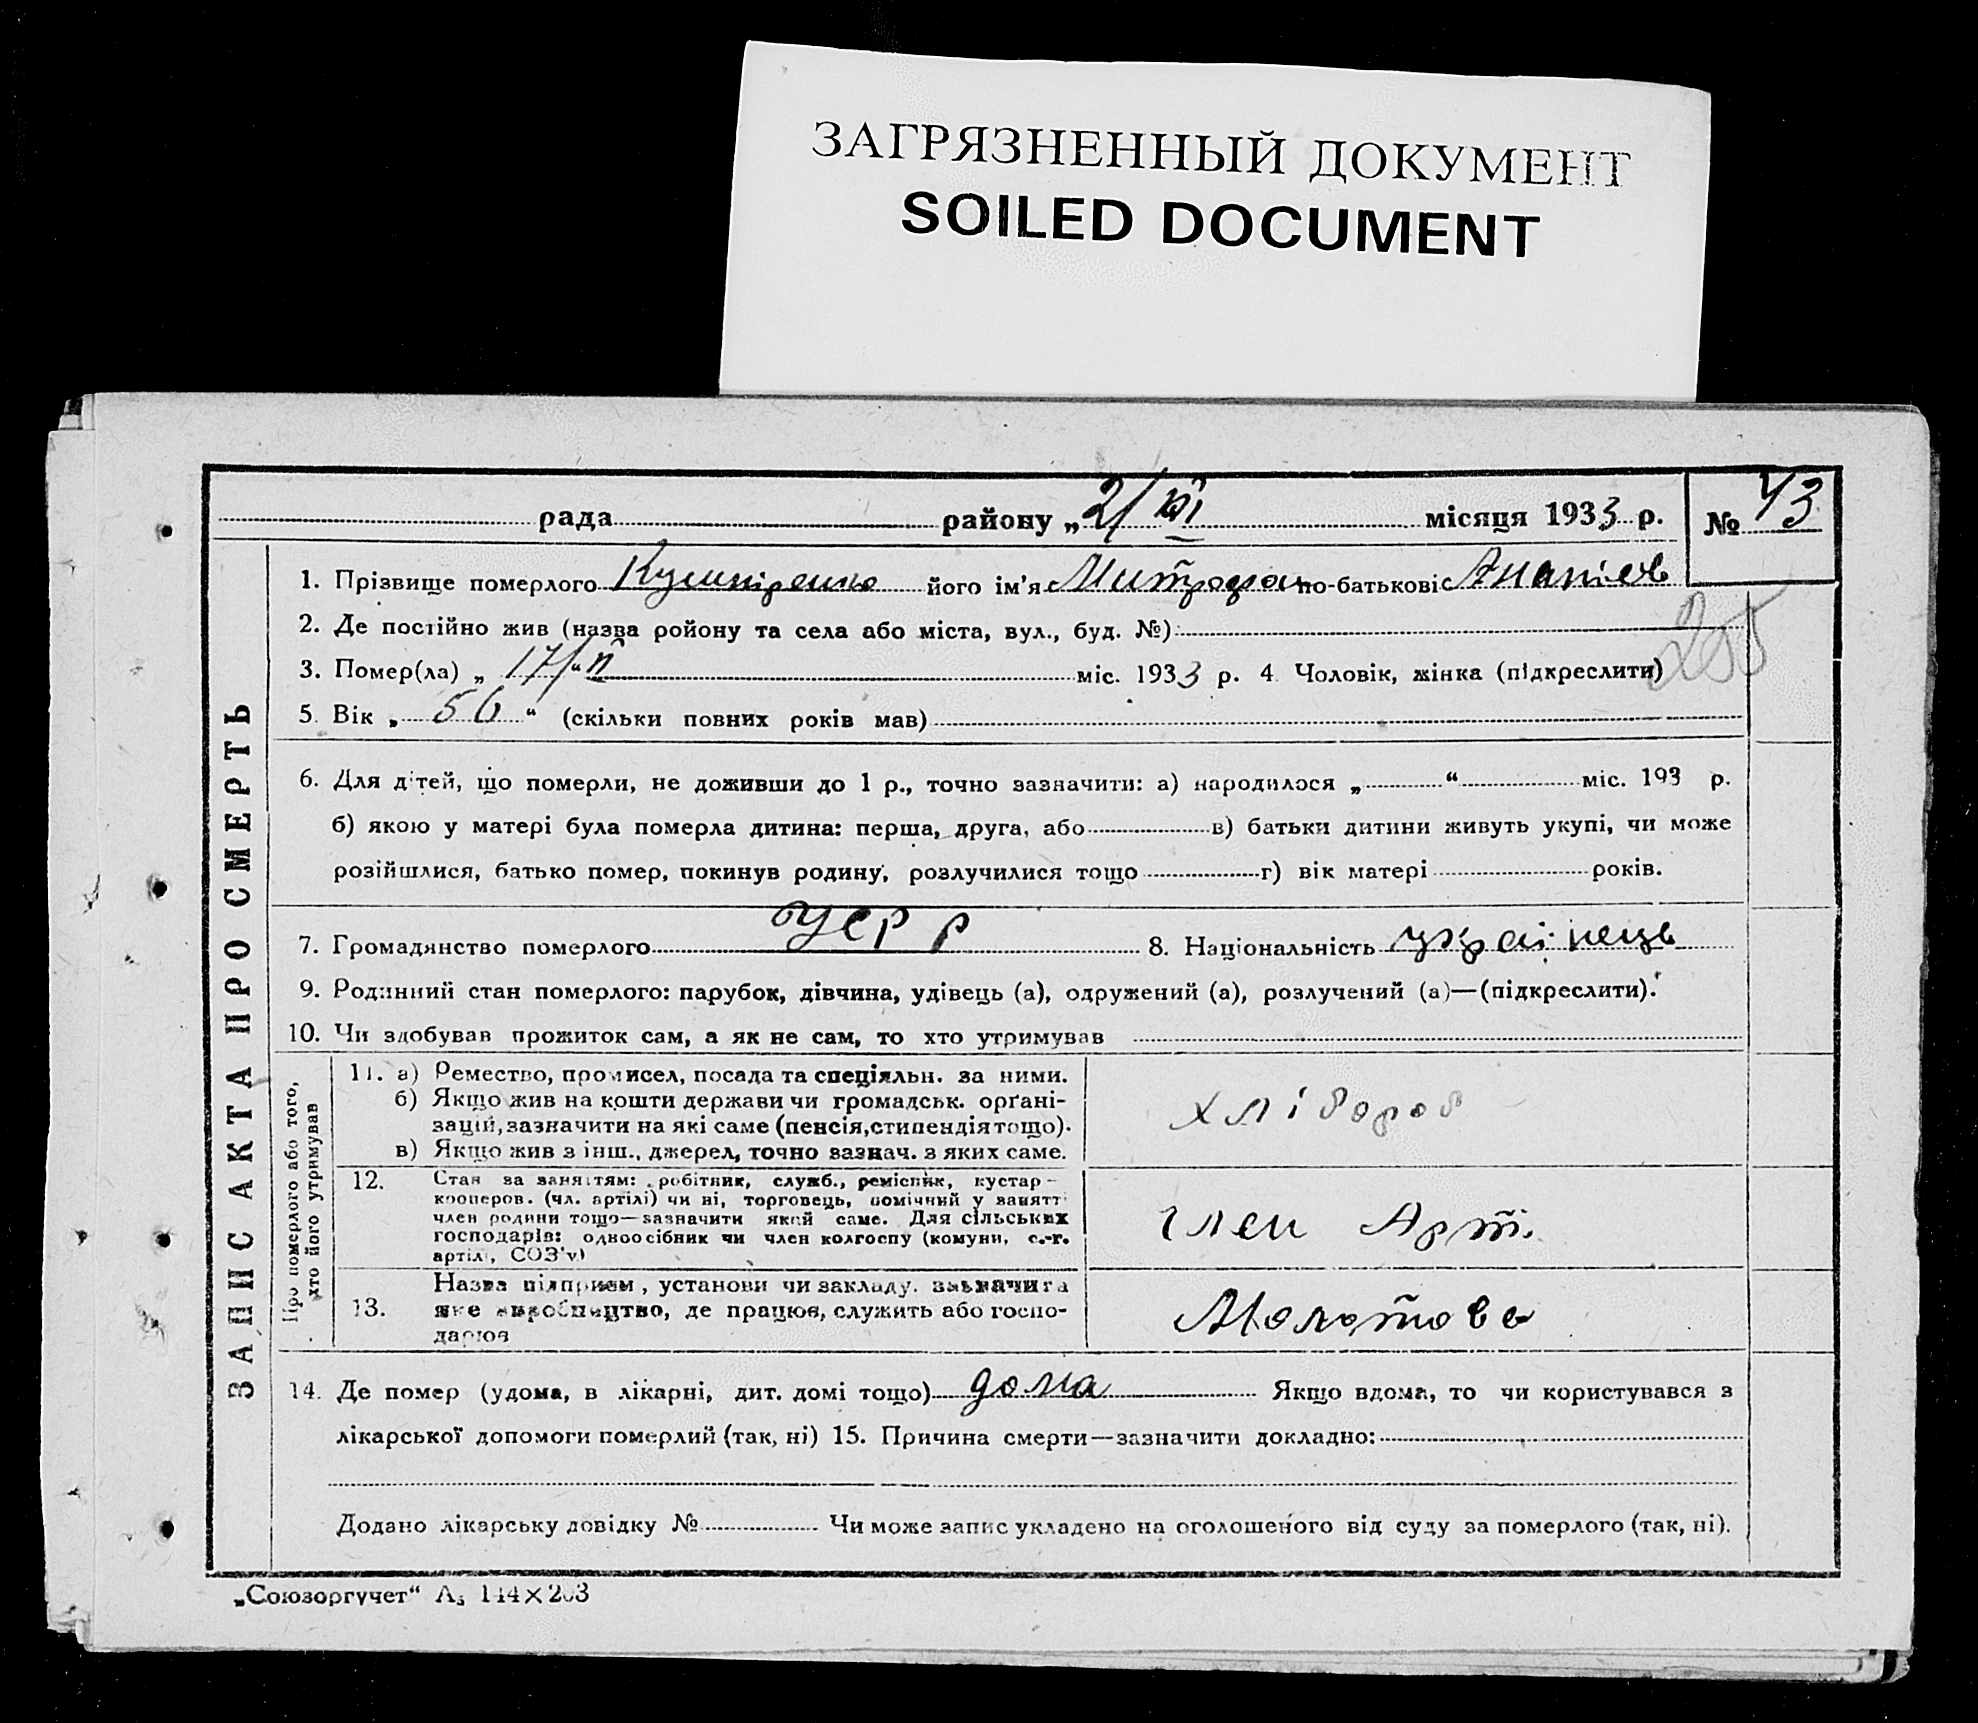 ЗАГРЯЗНЕННЫЙ ДОКУМЕНТ
SOILED DOCUMENT
рада району „ 2/VI місяця 1933 р. № 43
1. Прізвище померлого Кушніренко його ім'я Митрофан по-батькові Ананіев
255
2. Де постійно жив (назва ройону та села або міста, вул., буд. №)
3. Помер(ла) „ 17/“ міс. 1933 р. 4 Чоловік, жінка (підкреслити)
5. Вік „ 56 “ (скільки повних років мав)
6. Для дітей, що померли, не доживши до 1 р., точно зазначити: а) народилося „ “ міс. 193 р.
б) якою у матері була померла дитина: перша, друга, або в) батьки дитини живуть укупі, чи може
розійшлися, батько помер, покинув родину, розлучилися тощо г) вік матері років.
7. Громадянство померлого УСРР 8. Національність українець
9. Родинний стан померлого: парубок, дівчина, удівець (а), одружений (а), розлучений (а)—(підкреслити).
10. Чи здобував прожиток сам, а як не сам, то хто утримував
Про померлого або того,
хто його утримував
11. а) Ремество, промисел, посада та спеціяльн. за ними.
б) Якщо жив на кошти держави чи громадськ. орґані-
зацій, зазначити на які саме (пенсія, стипендія тощо).
в) Якщо жив з інш., джерел, точно зазнач. з яких саме.
хлібороб
12. Стан за заняттям: робітник, служб., ремісник, кустар-
кооперов. (чл. артілі) чи ні, торговець, помічний у занятті
член родини тощо—зазначити який саме. Для сільських
господарів: одноосібник чи член колгоспу (комуни, с.-г.
артілі, СОЗ'у)
член Арті.
13. Назва підприєм, установи чи закладу. зазначити
яке виробництво, де працює, служить або госпо-
дарює
Молотова
14. Де помер (удома, в лікарні, дит. домі тощо) дома Якщо вдома, то чи користувався з
лікарської допомоги померлий (так, ні) 15. Причина смерти—зазначити докладно:
Додано лікарську довідку № Чи може запис укладено на оголошеного від суду за померлого (так, ні).
ЗАПИС АКТА ПРО СМЕРТЬ
„Союзоргучет“ А₅ 144×203